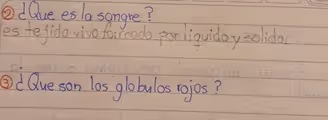 ② ¿Que es la sangre?
es tejido vivo formado por liquido y solido.
③ ¿Que son los globulos rojos?